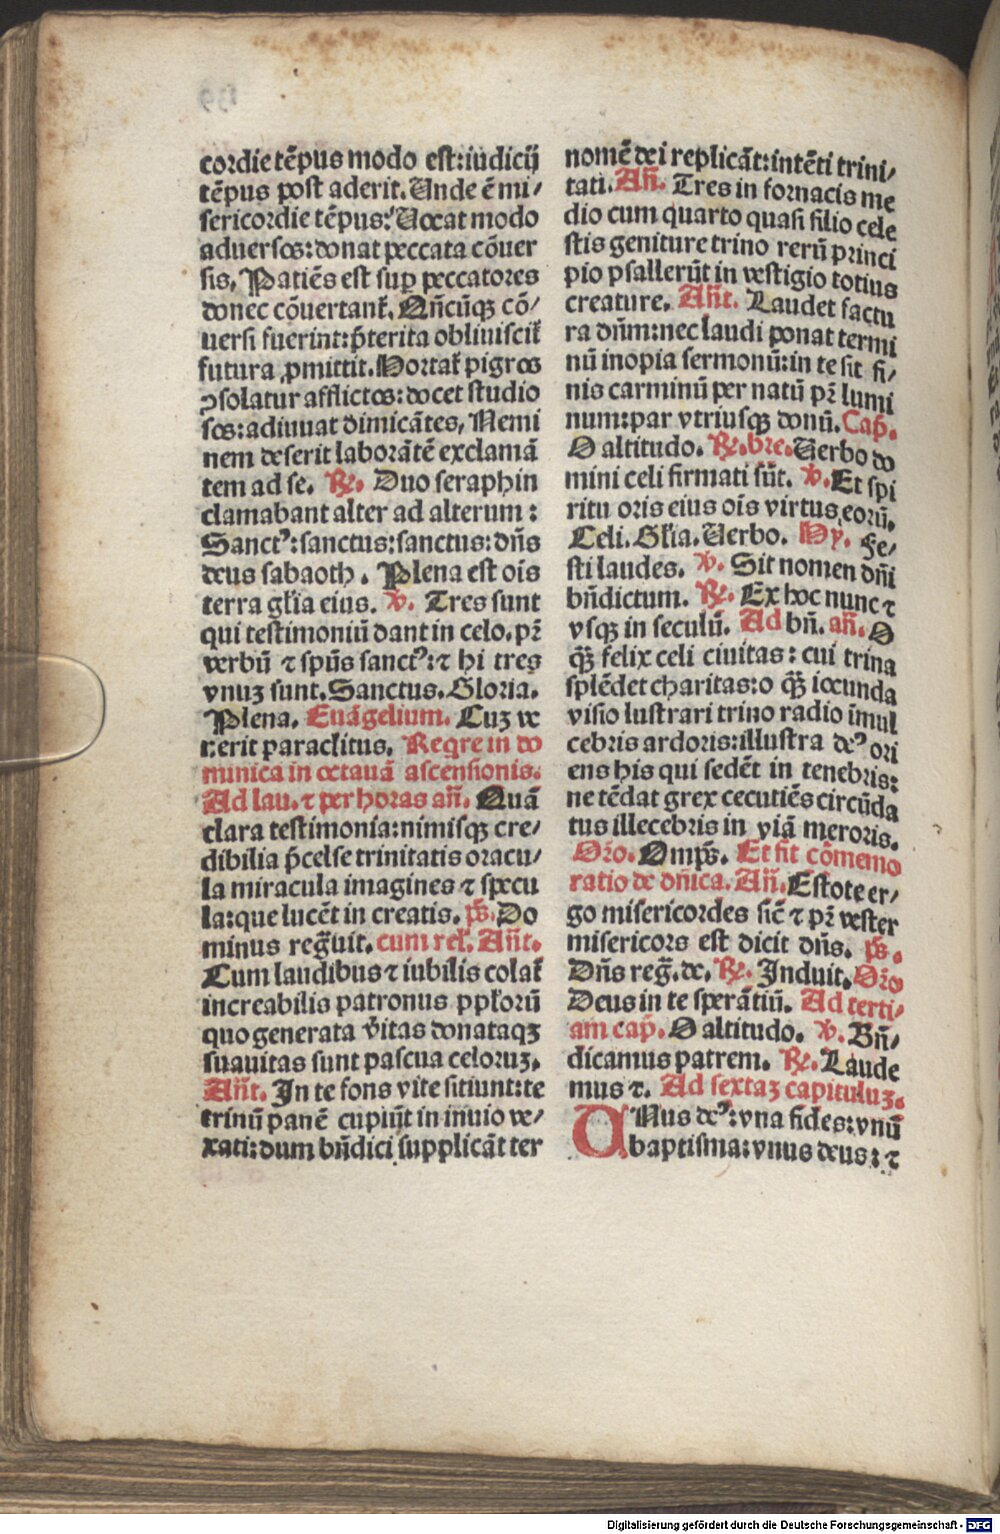 cordie tēpus modo est:iudicij
tēpus post aderit.Unde ē mi/
sericordie tēpus:Uocat modo
aduersos:donat peccata cōuer
sis, Patiēs est sup peccatores
donec cōuertant᷑. Qn̄cūqꝫ cō/
uersi fuerint:p̄terita obliuiscit᷑
futura ꝓmittit.Hortat᷑ pigros
ꝯsolatur afflictos:docet studio
sos:adiuuat dimicātes, Nemi
nem deserit laborātē exclamā
tem ad se. ℞. Duo seraphin
clamabant alter ad alterum :
Sanctꝰ:sanctus:sanctus:dn̄s
deus sabaoth . Plena est oīs
terra gl̄ia eius. ℣. Tres sunt
qui testimoniū dant in celo.pr̄
verbū ⁊ spūs sanctꝰ:⁊ hi tres
vnuꝫ sunt.Sanctus.Gloria.
Plena. Euāgelium. Cuꝫ ve
nerit paraclitus. Reqre in do
minica in octauā ascensionis.
Ad lau.⁊ per horas an̄. Quā
clara testimonia:nimisqꝫ cre/
dibilia p̄celse trinitatis oracu/
la miracula imagines ⁊ specu
la:que lucēt in creatis. p̄s. Do
minus regͣuit. cum rel̄. An̄t.
Cum laudibus ⁊ iubilis colat᷑
increabilis patronus ppl'orū
quo generata v̄itas donataqꝫ
suauitas sunt pascua celoruꝫ.
An̄t. In te fons vite sitiunt:te
trinū panē cupiūt in inuio ve/
xati:dum bn̄dici supplicāt ter
nomē dei replicāt:intēti trini/
tati. An̄. Tres in fornacis me
dio cum quarto quasi filio cele
stis geniture trino rerū princi
pio psallerūt in vestigio totius
creature. An̄t. Laudet factu
ra dn̄m:nec laudi ponat termi
nū inopia sermonū:in te sit fi/
nis carminū per natū pr̄ lumi
num:par vtriusqꝫ donū. Cap̄.
O altitudo. ℞. bre. Uerbo do
mini celi firmati sūt. ℣. Et spi
ritu oris eius oīs virtus eorū.
Celi. Gl̄ia. Uerbo. Hy. Fe/
sti laudes. ℣. Sit nomen dn̄i
bn̄dictum. ℞. Ex hoc nunc ⁊
vsqꝫ in seculū. Ad bn̄. an̄. O
qꝫ̄ felix celi ciuitas : cui trina
splēdet charitas:o qꝫ̄ iocunda
visio lustrari trino radio īmul
cebris ardoris:illustra deꝰ ori
ens his qui sedēt in tenebris:
ne tēdat grex cecutiēs circūda
tus illecebris in viā meroris.
Or̄o. Omp̄s. Et fit cōmemo
ratio de dn̄ica. An̄. Estote er/
go misericordes sic̄ ⁊ pr̄ vester
misericors est dicit dn̄s. p̄s.
Dn̄s reg̃. dc̄. ℞. Induit. Or̄o
Deus in te sperātiū. Ad terti/
am cap̄. O altitudo. ℣. Bn̄/
dicamus patrem. ℞. Laude
mus ⁊. Ad sextaꝫ capituluꝫ.
UNus deꝰ:vna fides:vnū
baptisma:vnus deus: ⁊
Digitalisierung gefördert durch die Deutsche Forschungsgemeinschaft - DFG